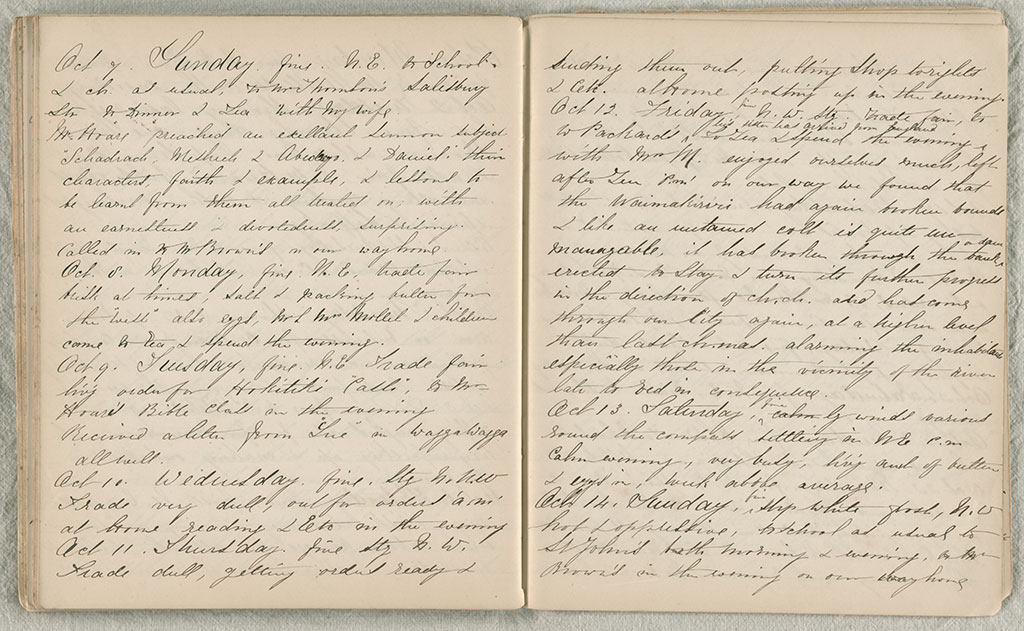 Oct 7. Sunday, fine. N.E. to School
& ch. as usual, to Mr Thomson's Salisbury
Str. to Dinner & Tea with my wife.
Mr Hoare preached an excellent sermon subject
"Schadrach, Meshech & Abedn. & Daniel" their
characters, faith & example, & lessons to
be learnt from them all treated on, with
an earnestness & devotedness surprising.
Called in to Mr Brown's on our way home
Oct. 8. Monday, fine N.E. trade fair
brisk at times, salt & packing butter for
the "Well" also eggs, Mr & Mrs Mollet & children
come to Tea, & spend the evening.
Oct 9. Tuesday, fine. N.E. Trade fair
big order for Hoekitiki "Calls" to Mr
Hoare's Bible Class in the evening
Received a letter from "Sue" in Wagga Wagga
all well.
Oct 10. Wednesday. fine. Stg N.W
Trade very dull, out for orders a.m.
at home reading & Etc in the evening
Oct 11. Thursday. fine Stg N.W.
Trade dull, getting orders ready &
sending them out, putting shop to rights
& Etc. at home posting up in the evening.
Oct 12. Friday, fine N.W. Stg. Trade fair, to
his sister has arrived from England
to Packard's, to Tea & spend the evening
with Mrs M. enjoyed ourselves much, left
after Ten P.m. on our way we found that
the Waimakiriri had again broken bounds
& like an untamed colt is quite un-
manageable, it has broken through the bank
erected to stay & turn its further progress
in the direction of chch. and has come
through our City again, at a higher level
than last christmas. alarming the inhabitants
especially those in the vicinity of the river
late to bed in consequence.
Oct 13. Saturday, fine calm by winds various
round the compass settling in N.E p.m
Calm evening, very busy, big and of butter
& eggs in, week above average.
Oct. 14. Sunday, fine sharp white frost, N.W
hot & oppressive, to school as usual to
St John's both morning & evening, to Mr
Brown's in the evening on our way home